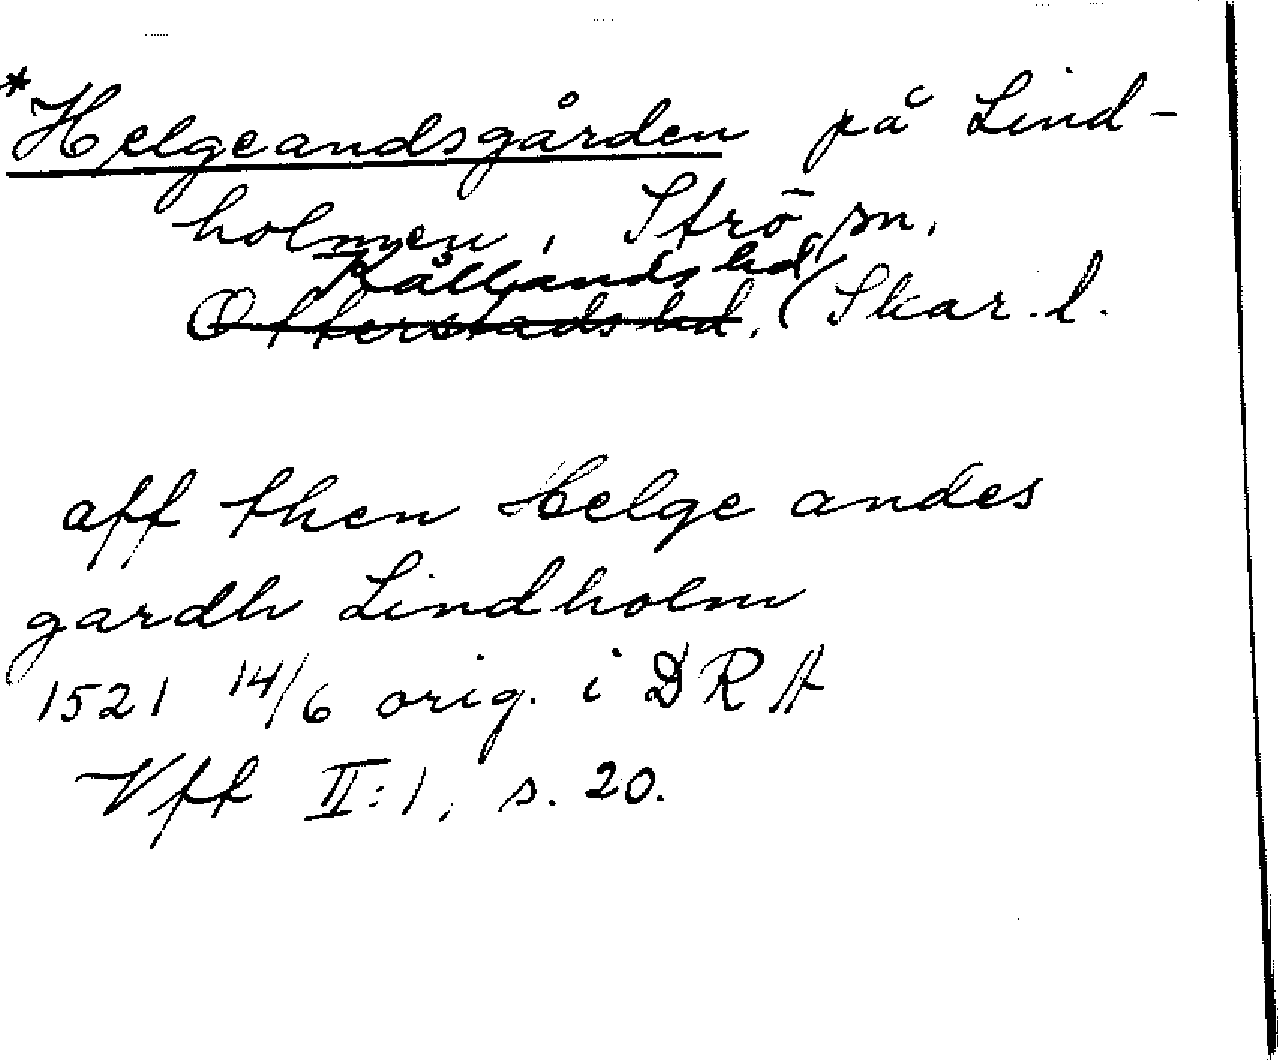 *Helgeandsgården på Lind-
holmen, Strö sn,
Kållands hd,
Otterstads hd. (Skar. l.
aff then Helge andes
gardh Lindholm
1521 14/6 orig. i DRA
Vff II:1, s. 20.